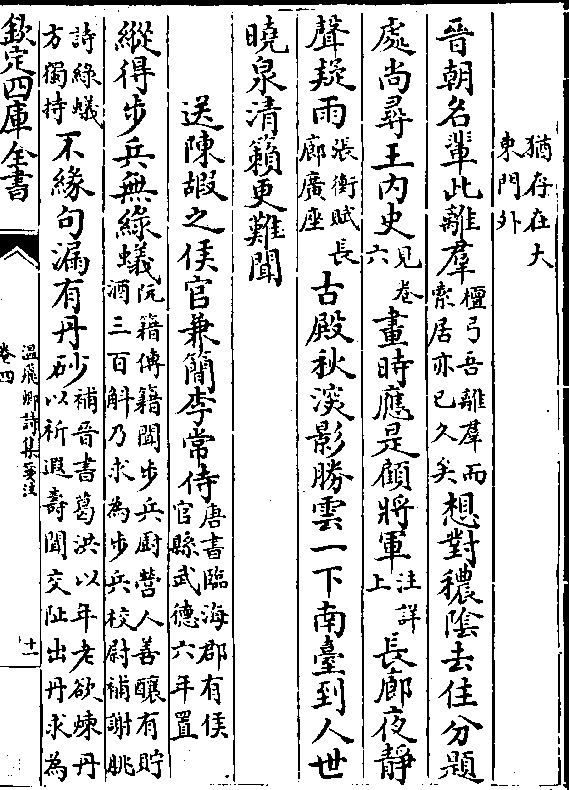 猶存在大
東門外
晉朝名輩此離羣檀弓吾離羣而索居亦已久矣想對穠陰去住分題
處尚尋王内史見卷六畫時應是顧將軍注詳上長廊夜靜
聲疑雨張衡賦長廊廣座古殿秋深影勝雲一下南臺到人世
曉泉清籟更難聞
送陳嘏之侯官兼簡李常侍唐書臨海郡有侯官縣武德六年置
縱得步兵無綠蟻阮籍傳籍聞步兵廚營人善釀有貯酒三百斛乃求為步兵校尉補謝朓
詩綠蟻方獨持不緣句漏有丹砂補晉書葛洪以年老欲煉丹以祈遐壽聞交阯出丹求為
欽定四庫全書
溫飛卿詩集箋注
卷四
十一